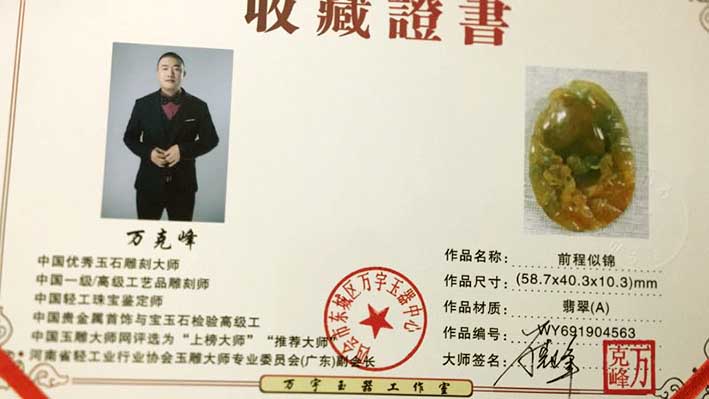 收藏證書
万克峰
中国优秀玉石雕刻大师
中国一级/高级工艺品雕刻师
中国轻工珠宝鉴定师
中国贵金属首饰与宝玉石检验高级工
中国玉雕大师网评选为“上榜大师”“推荐大师”
河南省轻工业行业协会玉雕大师专业委员会(广东)副会长
作品名称： 前程似锦
作品尺寸： (58.7x40.3x10.3)mm
作品材质： 翡翠(A)
作品编号： WY691904563
大师签名：
四会市东城区万宇玉器中心
万克峰
万宇玉器工作室